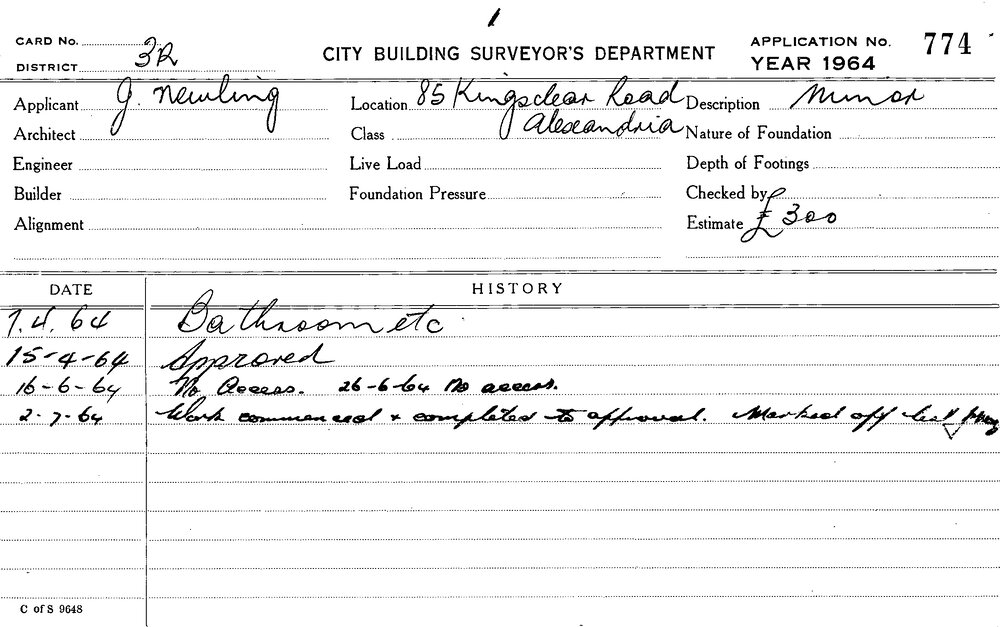 1
CARD No. CITY BUILDING SURVEYOR'S DEPARTMENT APPLICATION No. 774
DISTRICT 3R YEAR 1964
Applicant J. Newling Location 85 Kingsclear Road Description Minor
Architect Class Alexandria Nature of Foundation
Engineer Live Load Depth of Footings
Builder Foundation Pressure Checked by
Alignment Estimate £300
DATE HISTORY
7.4.64 Bathroom etc
15-4-64 Approved
16-6-64 No Access. 26-6-64 No access.
2-7-64 Work commenced & completed to approval. Marked off
C of S 9648